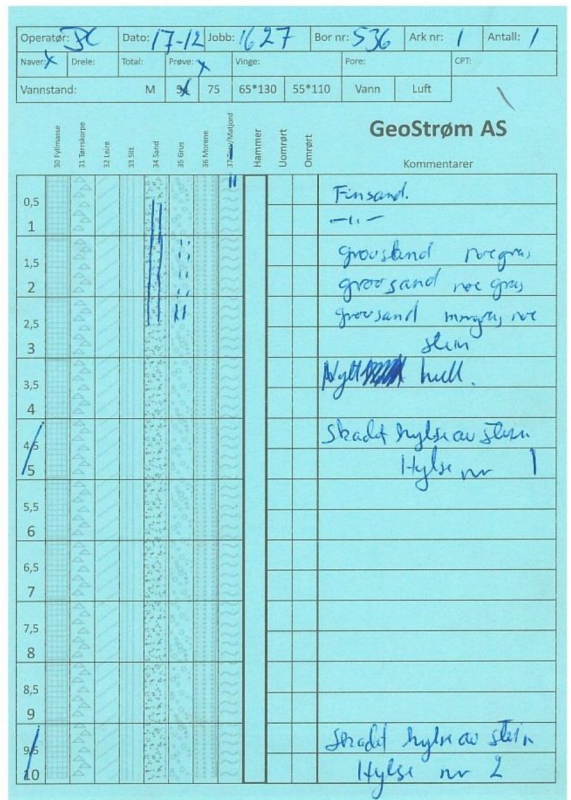 Operatør: PC Dato: 17-12 Jobb: 1627 Bor nr: 536 Ark nr: 1 Antall: 1
Naver: x Drele: Total: Prøve: x Vinge: Pore: CPT:
Vannstand: M 54 75 65*130 55*110 Vann Luft
GeoStrøm AS
30 Fyllmasse 31 Tørrskorpe 32 Leire 33 Silt 34 Sand 35 Grus 36 Morene /Matjord Hammer Uomrørt Omrørt Kommentarer
0,5 Finsand.
1 —"—
1,5 grovsand noe grus
2 grovsand noe grus
2,5 grovsand noe
3 stein
3,5 Nytt hull.
4
4,5 Skadet hylse av stein
5 Hylse nr 1
5,5
6
6,5
7
7,5
8
8,5
9
9,5 Skadet hylse av stein
10 Hylse nr 2